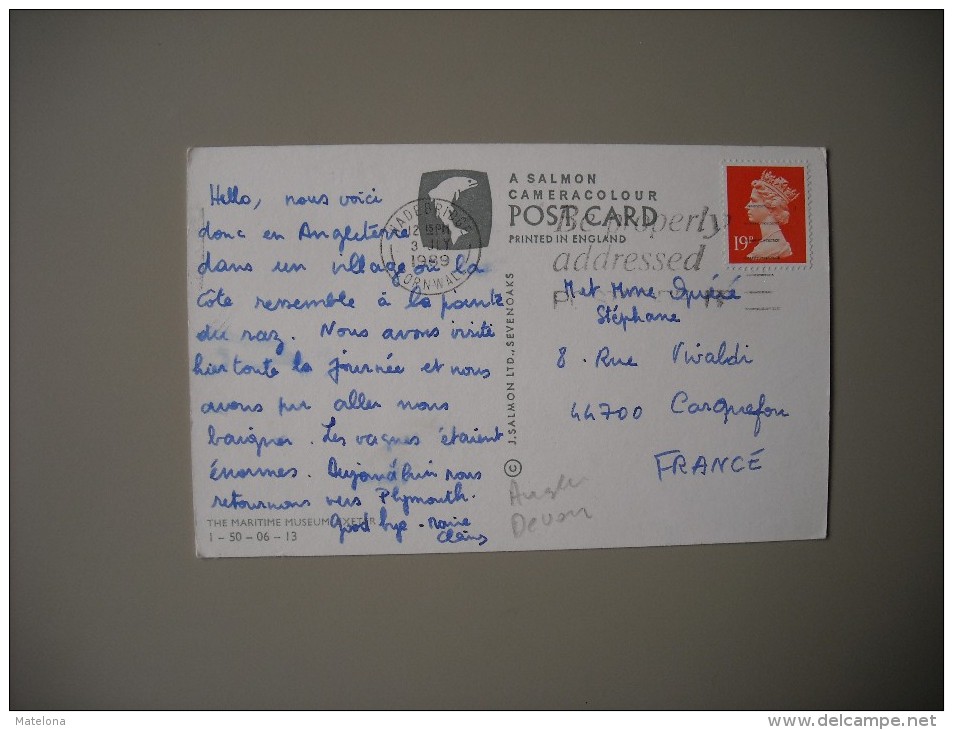 Hello, nous voici
donc en Angleterre
dans un village où la
côte ressemble à la pointe
du raz. Nous avons visité
hier toute la journée et nous
avons pu aller nous
baigner. Les vagues étaient
énormes. Aujourd'hui nous
retournons vers Plymouth.
Good bye - Marie
THE MARITIME MUSEUM, EXETER
1 – 50 – 06 – 13
WADEBRIDGE
12 15PM
3 JLY
1989
CORNWALL
A SALMON
CAMERACOLOUR
POST CARD
PRINTED IN ENGLAND
Be properly
addressed
19P
© J. SALMON LTD., SEVENOAKS
M et Mme
Stéphane
8 . Rue Vivaldi
44700 Carquefou
FRANCE
Devon
Matelona
www.delcampe.net